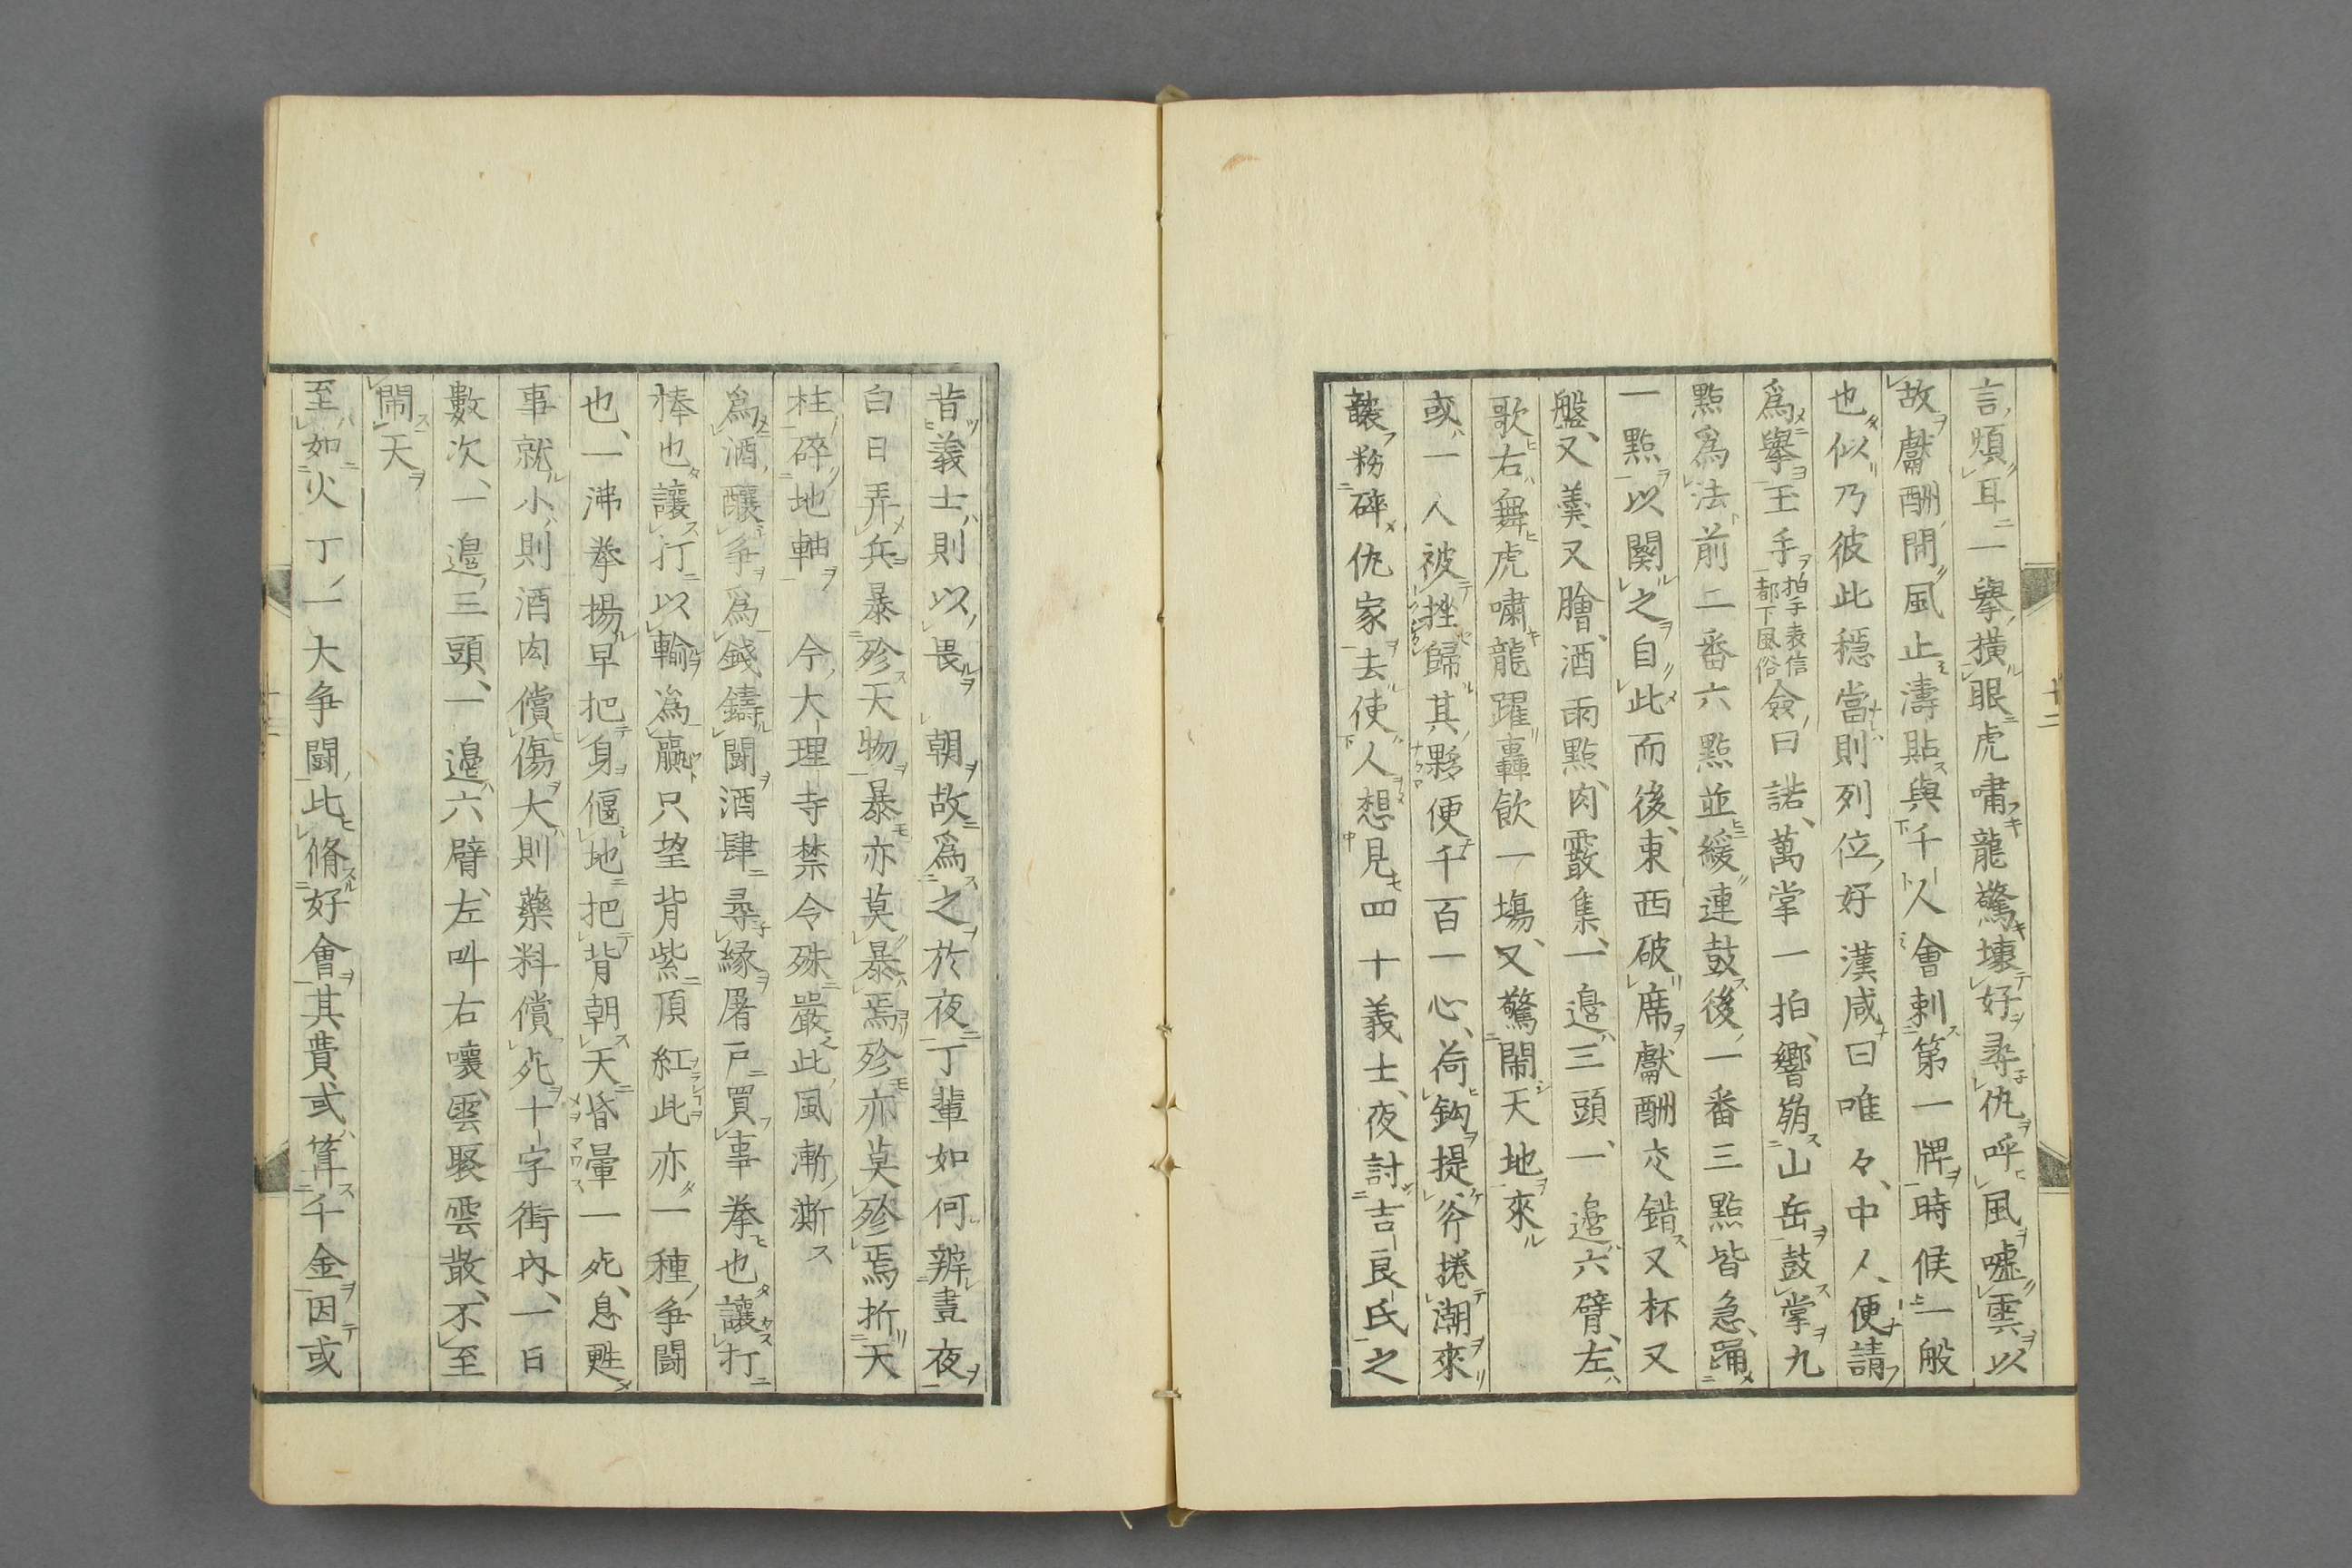 言煩耳一擧横眼虎嘯龍驚壊好尋仇呼風嘘雲以
故獻酬閙風止濤貼與千人會剌第一牌時候一般
也似乃彼此穩當則列位好漢咸曰唯々中人便請
爲擧玉手拍手表信都下風俗僉曰諾萬掌一拍響崩山岳鼓掌九
點爲法前二番六點並緩連鼓後一番三點皆急踊
一點以闋之自此而後東西破席獻酬交錯又杯又
盤又羹又膾酒雨點肉霰集一邉三頭一邉六臂左
歌右舞虎嘯龍躍轟飲一塲又驚閙天地來
或一人被挫歸其夥便千百一心荷鈎提斧捲潮來
粉碎仇家去使人想見四十義士夜討吉良氏之
昔義士則以畏朝故爲之於夜丁輩如何辨晝夜
白日弄兵暴殄天物暴亦莫暴焉殄亦莫殄焉折天
柱碎地軸今大理寺禁令殊嚴此風漸澌ス
爲酒釀爭爲錢鑄闘酒肆尋縁屠戸買事拳也讓打
棒也讓打以輸爲贏只望背紫頂紅此亦一種爭闘
也一沸拳揚早把身偃地把背朝天昏暈一死息甦
事就小則酒肉償傷大則藥料償死十字街内一日
數次一邉三頭一邉六臂左叫右嚷雲聚雲散不至
閙天
至如火丁一大争闘此脩好會其費或算千金因或
十二